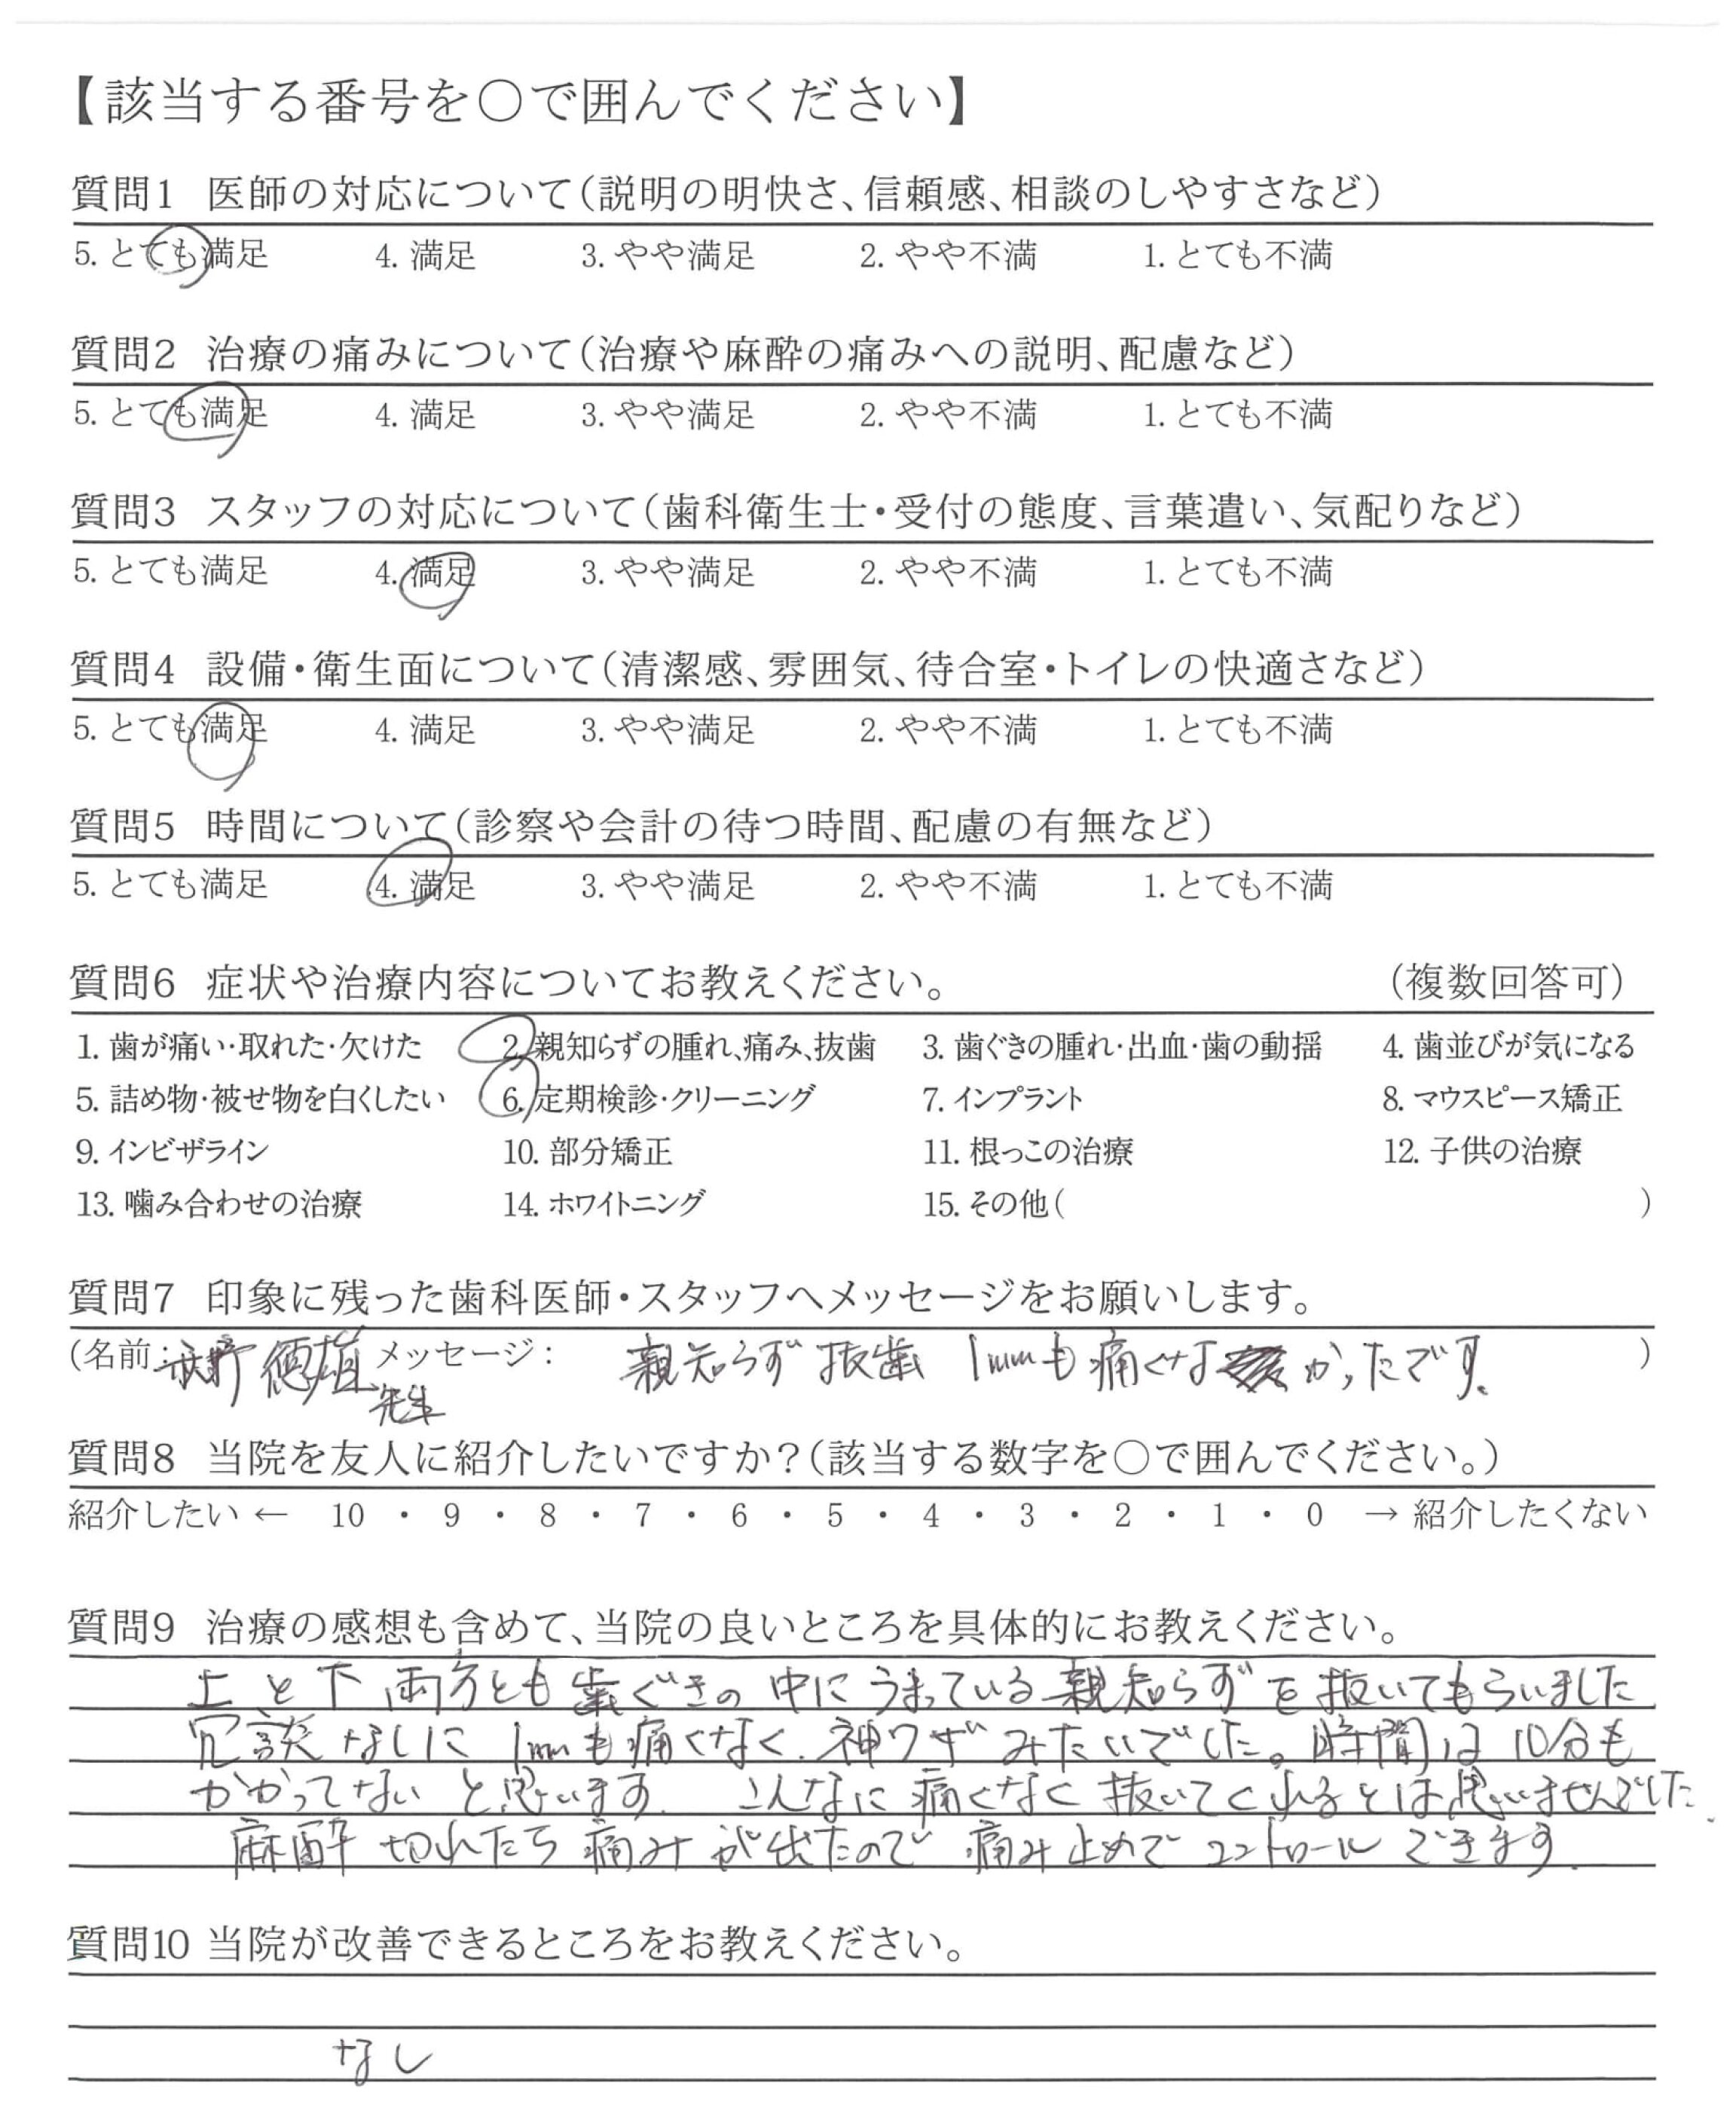 【該当する番号を○で囲んでください】
質問1 医師の対応について(説明の明快さ、信頼感、相談のしやすさなど)
5. とても満足 4. 満足 3. やや満足 2. やや不満 1. とても不満
質問2 治療の痛みについて(治療や麻酔の痛みへの説明、配慮など)
5. とても満足 4. 満足 3. やや満足 2. やや不満 1. とても不満
質問3 スタッフの対応について(歯科衛生士・受付の態度、言葉遣い、気配りなど)
5. とても満足 4. 満足 3. やや満足 2. やや不満 1. とても不満
質問4 設備・衛生面について(清潔感、雰囲気、待合室・トイレの快適さなど)
5. とても満足 4. 満足 3. やや満足 2. やや不満 1. とても不満
質問5 時間について(診察や会計の待つ時間、配慮の有無など)
5. とても満足 4. 満足 3. やや満足 2. やや不満 1. とても不満
質問6 症状や治療内容についてお教えください。 (複数回答可)
1. 歯が痛い・取れた・欠けた 2. 親知らずの腫れ、痛み、抜歯 3. 歯ぐきの腫れ・出血・歯の動揺 4. 歯並びが気になる
5. 詰め物・被せ物を白くしたい 6. 定期検診・クリーニング 7. インプラント 8. マウスピース矯正
9. インビザライン 10. 部分矯正 11. 根っこの治療 12. 子供の治療
13. 噛み合わせの治療 14. ホワイトニング 15. その他( )
質問7 印象に残った歯科医師・スタッフへメッセージをお願いします。
(名前: 徳雄 先生 メッセージ: 親知らず抜歯 1mmも痛くなかったです。 )
質問8 当院を友人に紹介したいですか?(該当する数字を○で囲んでください。)
紹介したい ← 10 ・ 9 ・ 8 ・ 7 ・ 6 ・ 5 ・ 4 ・ 3 ・ 2 ・ 1 ・ 0 → 紹介したくない
質問9 治療の感想も含めて、当院の良いところを具体的にお教えください。
上と下両方とも歯ぐきの中にうまっている親知らずを抜いてもらいました
冗談なしに1mmも痛くなく、神ワザみたいでした。時間は10分も
かかってないと思います。こんなに痛くなく抜いてくれるとは思いませんでした。
麻酔切れたら痛みが出たので痛み止めでコントロールできます。
質問10 当院が改善できるところをお教えください。
なし